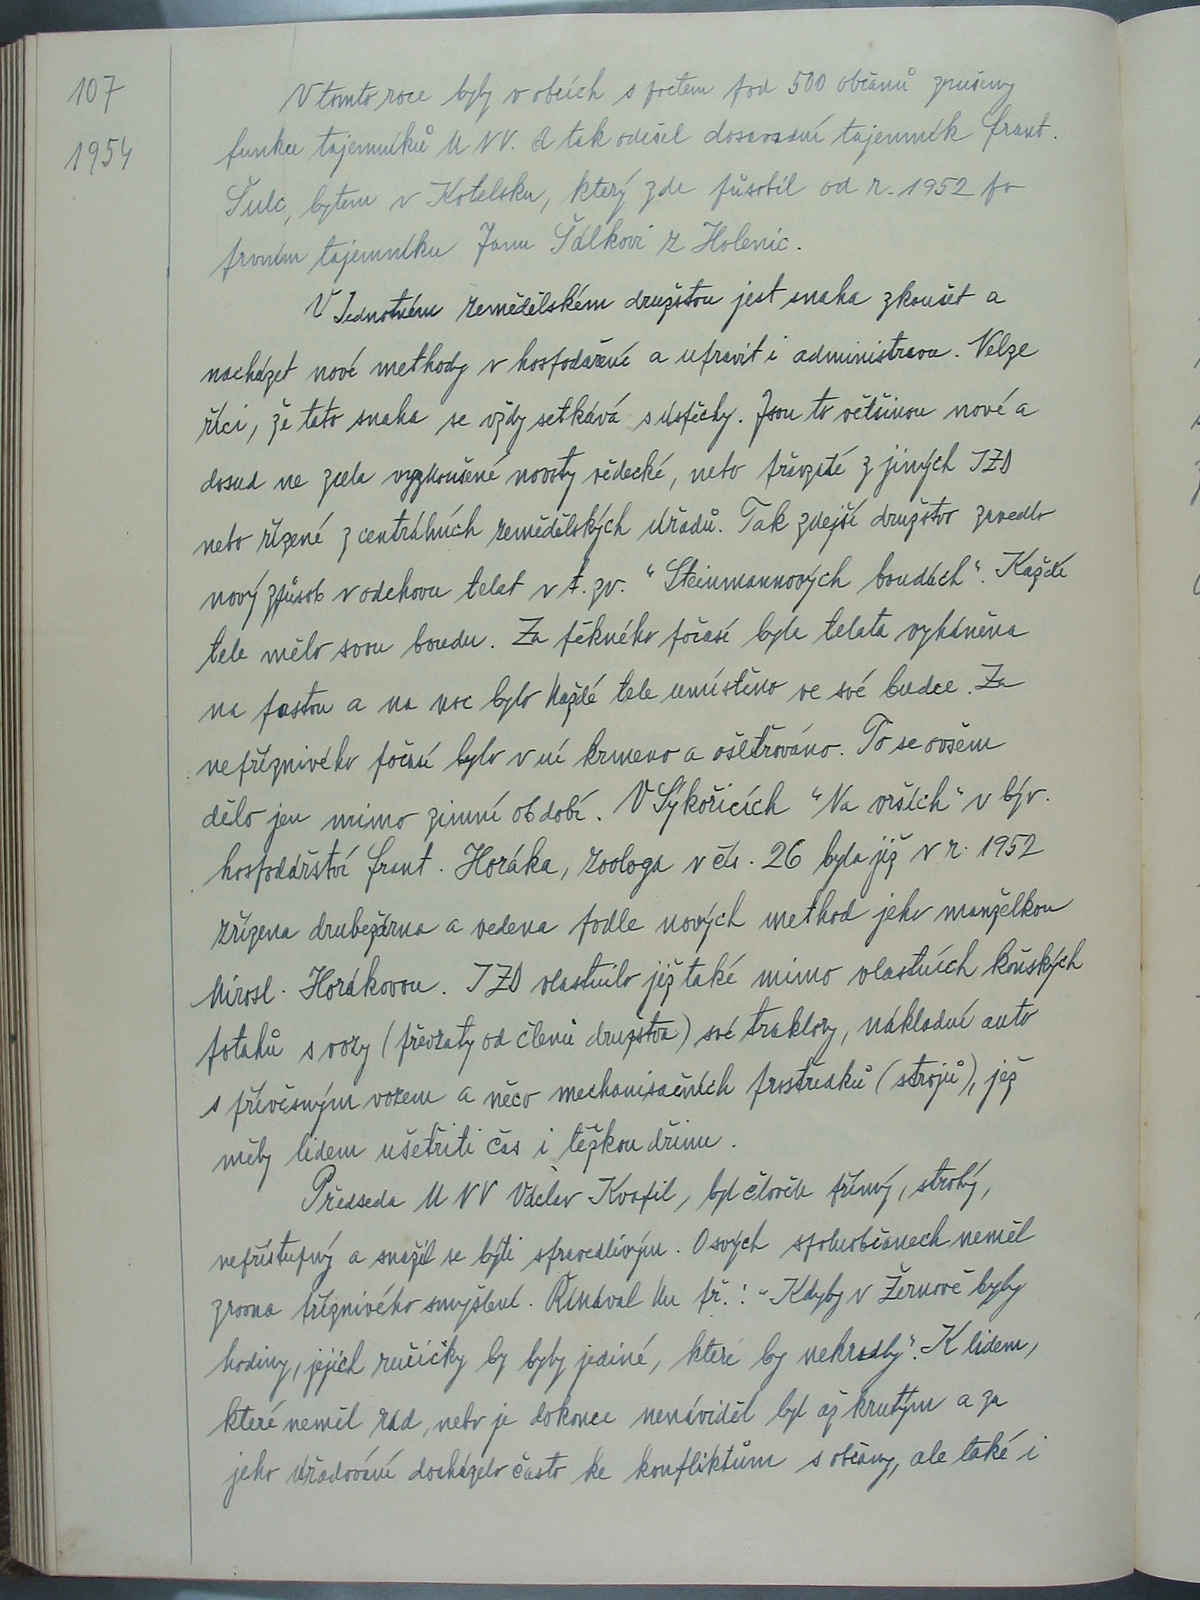 107
1954
V tomto roce byly v obcích s počtem pod 500 občanů zrušeny
funkce tajemníků MNV. A tak odešel dosavadní tajemník Frant.
Šulc, bytem v Kotelsku, který zde působil od r. 1952 po
prvním tajemníku Janu Šálkovi z Holenic.
V Jednotném zemědělském družstvu jest snaha zkoušet a
nacházet nové methody v hospodaření a upravit i administravu. Nelze
říci, že tato snaha se vždy setkává s úspěchy. Jsou to většinou nové a
dosud ne zcela vyzkoušené novoty vědecké, nebo převzaté z jiných JZD
nebo řízené z centrálních zemědělských úřadů. Tak zdejší družstvo zavedlo
nový způsob v odchovu telat v t. zv. "Steinmannových boudách". Každé
tele mělo svou boudu. Za pěkného počasí byla telata vyháněna
na pastvu a na noc bylo každé tele umístěno ve své budce. Za
nepříznivého počasí bylo v ní krmeno a ošetřováno. To se ovšem
dělo jen mimo zimní období. V Sýkořicích "Na vrších" v býv.
hospodářství Frant. Horáka, zoologa v čís. 26 byla již v r. 1952
zřízena drubežárna a vedena podle nových method jeho manželkou
Mirosl. Horákovou. JZD vlastnilo již také mimo vlastních koňských
potahů s vozy (převzaty od členů družstva) své traktory, nákladní auto
s přívěsným vozem a něco mechanisačních prostředků (strojů), jež
měly lidem ušetřiti čas i těžkou dřinu.
Předseda MNV Václav Kvapil, byl člověk přímý, strohý,
nepřístupný a snažil se býti spravedlivým. O svých spoluobčanech neměl
zrovna příznivého smýšlení. Říkával ku př.: "Kdyby v Žernově byly
hodiny, jejich ručičky by byly jediné, které by nekradly". K lidem,
které neměl rád, nebo je dokonce nenáviděl byl až krutým a za
jeho úřadování docházelo často ke konfliktům s občany, ale také i